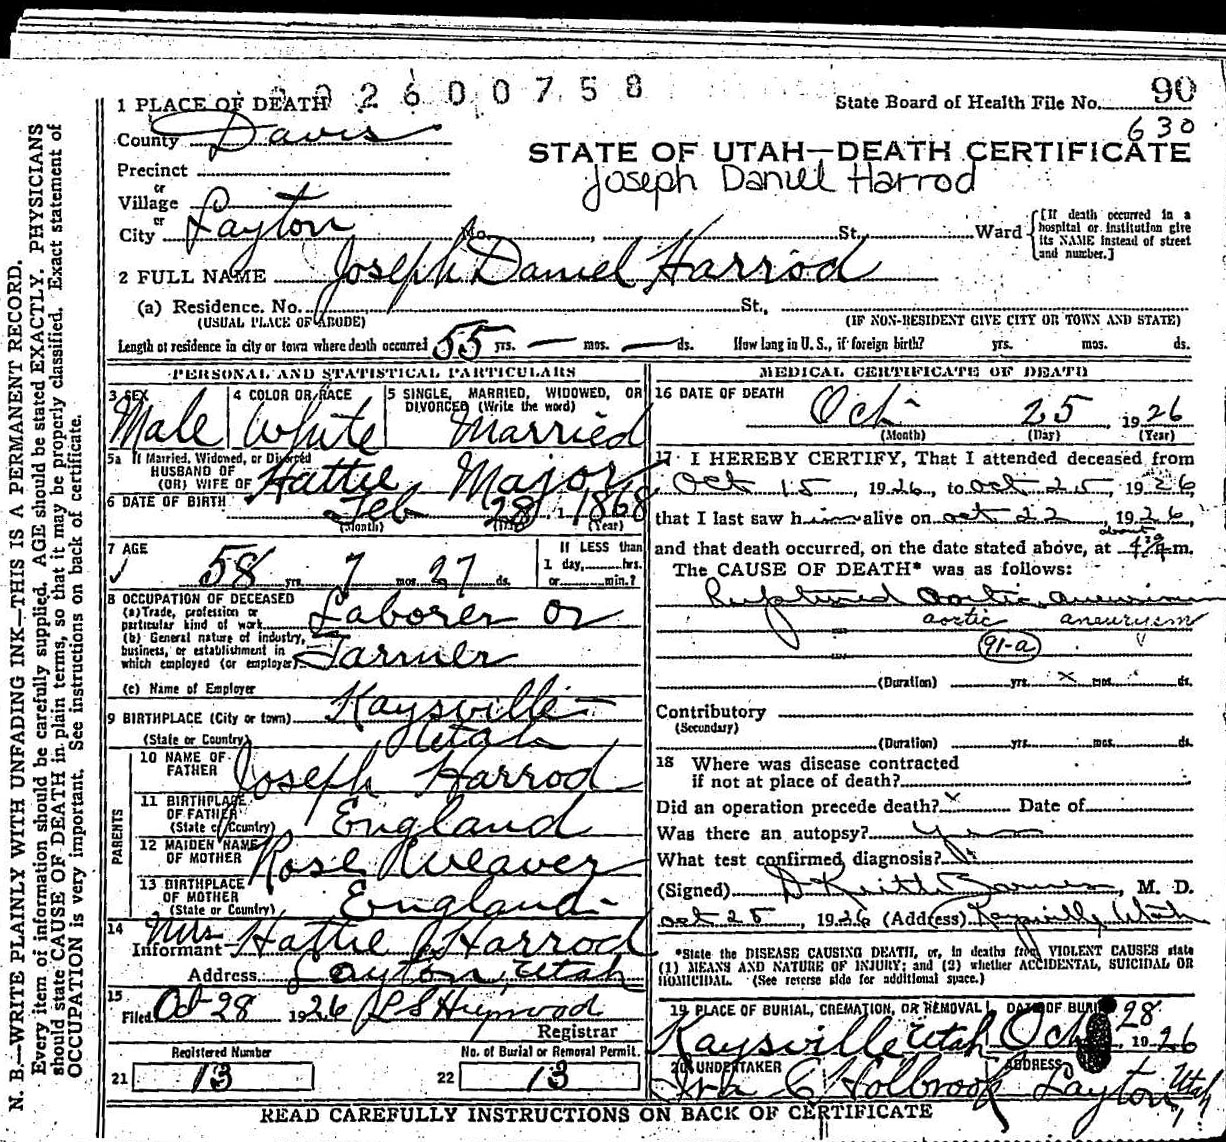 2600758
State Board of Health File No. 90
630
1 PLACE OF DEATH
County Davis
STATE OF UTAH—DEATH CERTIFICATE
Joseph Daniel Harrod
Precinct
or
Village
or
City Layton No. , St. Ward
[If death occurred in a
hospital or institution give
its NAME instead of street
and number.]
2 FULL NAME Joseph Daniel Harrod
(a) Residence. No. St.,
(USUAL PLACE OF ABODE) (IF NON-RESIDENT GIVE CITY OR TOWN AND STATE)
Length of residence in city or town where death occurred 55 yrs. — mos. — ds. How long in U. S., if foreign birth? yrs. mos. ds.
PERSONAL AND STATISTICAL PARTICULARS
3 SEX
Male
4 COLOR OR RACE
White
5 SINGLE, MARRIED, WIDOWED, OR
DIVORCED (Write the word)
Married
5a If Married, Widowed, or Divorced
HUSBAND OF
(OR) WIFE OF Hattie Major
6 DATE OF BIRTH Feb 28 1868
(Month) (Day) (Year)
7 AGE
58 yrs. 7 mos. 27 ds.
If LESS than
1 day, hrs.
or min.?
8 OCCUPATION OF DECEASED
(a) Trade, profession or
particular kind of work Laborer or
(b) General nature of industry,
business, or establishment in
which employed (or employer) Farmer
(c) Name of Employer
9 BIRTHPLACE (City or town) Kaysville
(State or Country) Utah
PARENTS
10 NAME OF
FATHER Joseph Harrod
11 BIRTHPLACE
OF FATHER
(State or Country) England
12 MAIDEN NAME
OF MOTHER Rose Weaver
13 BIRTHPLACE
OF MOTHER
(State or Country) England
14
Informant Mrs Hattie J Harrod
Address Layton, Utah
15
Filed Oct 28 1926
Registrar
Registered Number
21 13
No. of Burial or Removal Permit.
22 13
MEDICAL CERTIFICATE OF DEATH
16 DATE OF DEATH
Oct 25, 1926
(Month) (Day) (Year)
17 I HEREBY CERTIFY, That I attended deceased from
Oct 15, 1926, to Oct 25, 1926
that I last saw him alive on Oct 22, 1926,
about
and that death occurred, on the date stated above, at m.
The CAUSE OF DEATH* was as follows:
Ruptured aortic
aortic aneurysm
91-a
(Duration) yrs. x mos. ds.
Contributory
(Secondary)
(Duration) yrs. mos. ds.
18 Where was disease contracted
if not at place of death?
Did an operation precede death? x Date of
Was there an autopsy? yes
What test confirmed diagnosis?
(Signed) D Keith Barnes, M. D.
Oct 25, 1926 (Address) Kaysville, Utah
*State the DISEASE CAUSING DEATH, or, in deaths from VIOLENT CAUSES state
(1) MEANS AND NATURE OF INJURY; and (2) whether ACCIDENTAL, SUICIDAL OR
HOMICIDAL. (See reverse side for additional space.)
19 PLACE OF BURIAL, CREMATION, OR REMOVAL
Kaysville Utah
DATE OF BURIAL
Oct 28 1926
20 UNDERTAKER
Ira C Holbrook
ADDRESS
Layton, Utah
READ CAREFULLY INSTRUCTIONS ON BACK OF CERTIFICATE
N. B.—WRITE PLAINLY WITH UNFADING INK—THIS IS A PERMANENT RECORD.
Every item of information should be carefully supplied. AGE should be stated EXACTLY. PHYSICIANS
should state CAUSE OF DEATH in plain terms, so that it may be properly classified. Exact statement of
OCCUPATION is very important. See instructions on back of certificate.